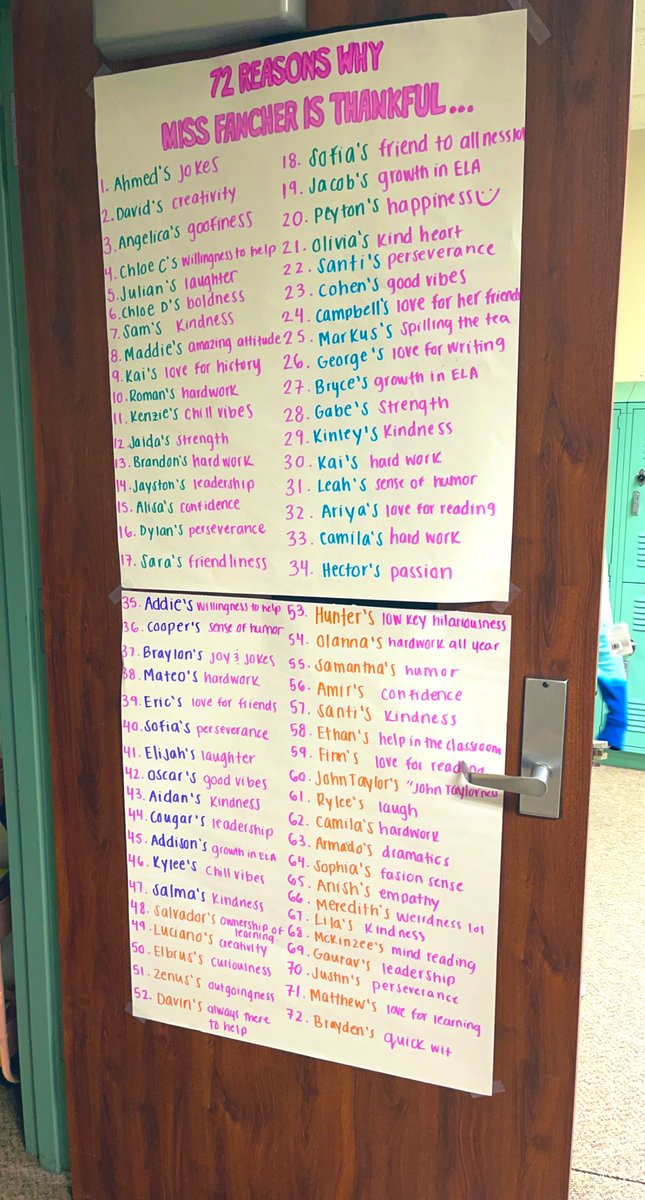 72 REASONS WHY
MISS FANCHER IS THANKFUL...
1. Ahmed's jokes
2. David's creativity
3. Angelica's goofiness
4. Chloe C's willingness to help
5. Julian's laughter
6. Chloe D's boldness
7. Sam's kindness
8. Maddie's amazing attitude
9. Kai's love for history
10. Roman's hardwork
11. Kenzie's chill vibes
12. Jaida's strength
13. Brandon's hard work
14. Jayston's leadership
15. Alisa's confidence
16. Dylan's perseverance
17. Sara's friendliness
18. Sofia's friend to all ness lol
19. Jacob's growth in ELA
20. Peyton's happiness
21. Olivia's kind heart
22. Santi's perseverance
23. Cohen's good vibes
24. Campbell's love for her friends
25. Markus's spilling the tea
26. George's love for writing
27. Bryce's growth in ELA
28. Gabe's strength
29. Kinley's kindness
30. Kai's hard work
31. Leah's sense of humor
32. Ariya's love for reading
33. Camila's hard work
34. Hector's passion
35. Addie's willingness to help
36. Cooper's sense of humor
37. Braylon's joy & jokes
38. Mateo's hardwork
39. Eric's love for friends
40. Sofia's perseverance
41. Elijah's laughter
42. Oscar's good vibes
43. Aidan's kindness
44. Cougar's leadership
45. Addison's growth in ELA
46. Kylee's chill vibes
47. Salma's kindness
48. Salvador's ownership of
learning
49. Luciano's creativity
50. Elbrus's curiousness
51. Zenus's outgoingness
52. Davin's always there
to help
53. Hunter's low key hilariousness
54. Olanna's hardwork all year
55. Samantha's humor
56. Amir's confidence
57. Santi's kindness
58. Ethan's help in the classroom
59. Finn's love for reading
60. John Taylor's "John Taylorness
61. Rylee's laugh
62. Camila's hardwork
63. Armado's dramatics
64. Sophia's fasion sense
65. Anish's empathy
66. Meredith's weirdness lol
67. Lila's kindness
68. Mckinzee's mind reading
69. Gaurav's leadership
70. Justin's perseverance
71. Matthew's love for learning
72. Brayden's quick wit